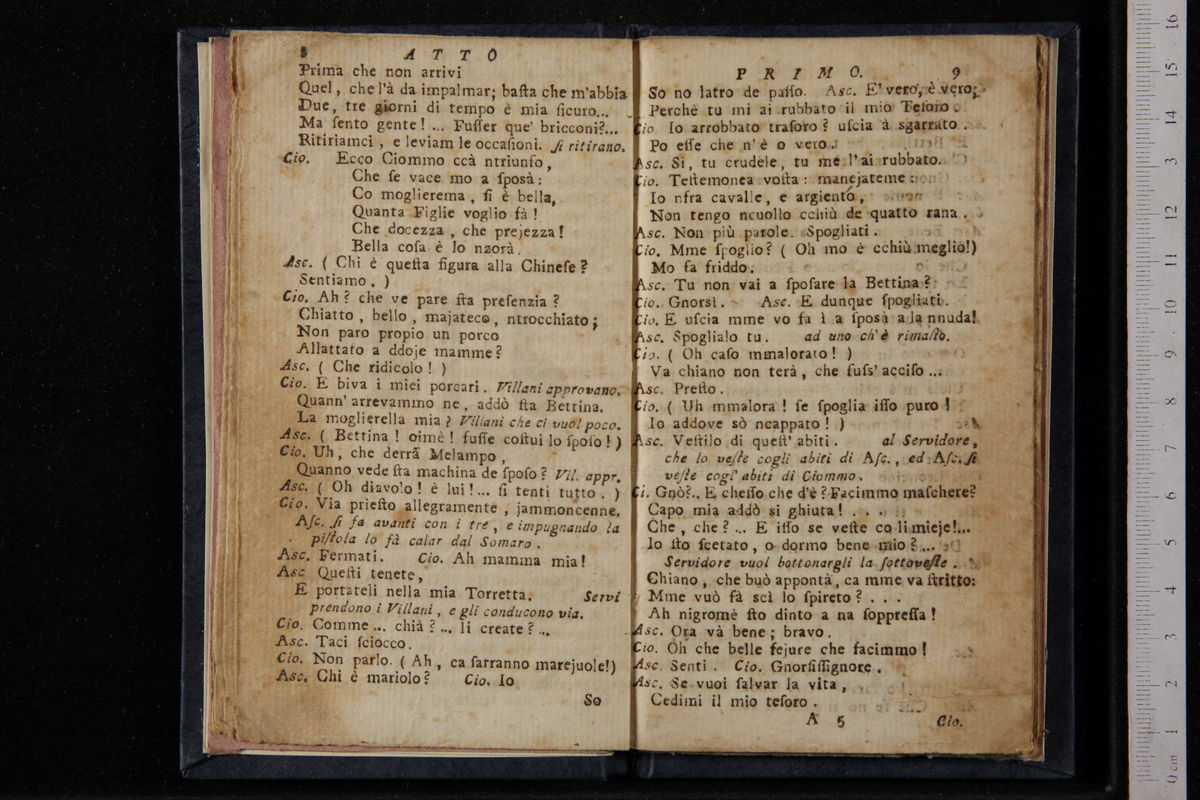 8 ATTO
Prima che non arrivi
Quel, che l'à da impalmar; baſta che m'abbia
Due, tre giorni di tempo è mia ſicuro...
Ma ſento gente! ... Fuſſer que' bricconi?...
Ritiriamci, e leviam le occaſioni. ſi ritirano.
Cio. Ecco Ciommo ccà ntriunfo,
Che ſe vace mo a ſposà:
Co moglierema, ſi è bella,
Quanta Figlie voglio fà!
Che docezza, che prejezza!
Bella coſa è lo nzorà.
Asc. ( Chi è queſta figura alla Chineſe?
Sentiamo. )
Cio. Ah? che ve pare ſta preſenzia?
Chiatto, bello, majateco, ntrocchiato;
Non paro propio un porco
Allattato a ddoje mamme?
Asc. ( Che ridicolo! )
Cio. E biva i miei porcari. Villani approvano.
Quann' arrevammo ne, addò ſta Bettina.
La moglierella mia? Villani che ci vuol poco.
Asc. ( Bettina! oimè! fuſſe coſtui lo ſpoſo! )
Cio. Uh, che derrà Melampo,
Quanno vede ſta machina de ſpoſo? Vil. appr.
Asc. ( Oh diavolo! è lui!... ſi tenti tutto. )
Cio. Via prieſto allegramente, jammoncenne.
Aſc. ſi fa avanti con i tre, e impugnando la
piſtola lo fà calar dal Somaro.
Asc. Fermati. Cio. Ah mamma mia!
Asc Queſti tenete,
E portateli nella mia Torretta. Servi
prendono i Villani, e gli conducono via.
Cio. Comme... chià?... li create?...
Asc. Taci ſciocco.
Cio. Non parlo. ( Ah, ca ſarranno marejuole!)
Asc. Chi è mariolo? Cio. Io
So
PRIMO. 9
So no latro de paſſo. Asc. E' vero, è vero;
Perchè tu mi ai rubbato il mio Teſoro.
Cio. Io arrobbato traſoro? uſcia à sgarrato.
Po eſſe che n'è o vero.
Asc. Si, tu crudele, tu me l'ai rubbato.
Cio. Teſtemonea voſta: manejateme:
Io nfra cavalle, e argiento,
Non tengo ncuollo cchiù de quatto rana.
Asc. Non più parole. Spogliati.
Cio. Mme ſpoglio? ( Oh mo è cchiù meglio!)
Mo fa friddo.
Asc. Tu non vai a ſpoſare la Bettina?
Cio. Gnorsì. Asc. E dunque ſpogliati.
Cio. E uſcia mme vo fa ì a ſposà a la nnuda!
Asc. Spoglialo tu. ad uno ch'è rimaſto.
Cio. ( Oh caſo mmalorato! )
Va chiano non terà, che fuſs' acciſo...
Asc. Preſto.
Cio. ( Uh mmalora! ſe ſpoglia iſſo puro!
Io addove sò ncappato! )
Asc. Veſtilo di queſt' abiti. al Servidore,
che lo veſte cogli abiti di Aſc., ed Aſc. ſi
veſte cogl' abiti di Ciommo.
Ci. Gnò?.. E cheſſo che d'è? Facimmo maſchere?
Capo mia addò si ghiuta! . . .
Che, che?... E iſſo se veſte co li mieje!...
Io ſto ſcetato, o dormo bene mio?...
Servidore vuol bottonargli la ſottoveſte.
Chiano, che buò appontà, ca mme va ſtritto:
Mme vuò fà scì lo ſpireto? . . .
Ah nigromè ſto dinto a na ſoppreſſa!
Asc. Ora và bene; bravo.
Cio. Oh che belle fejure che facimmo!
Asc. Senti. Cio. Gnorſiſſignore.
Asc. Se vuoi ſalvar la vita,
Cedimi il mio teſoro.
A 5 Cio.